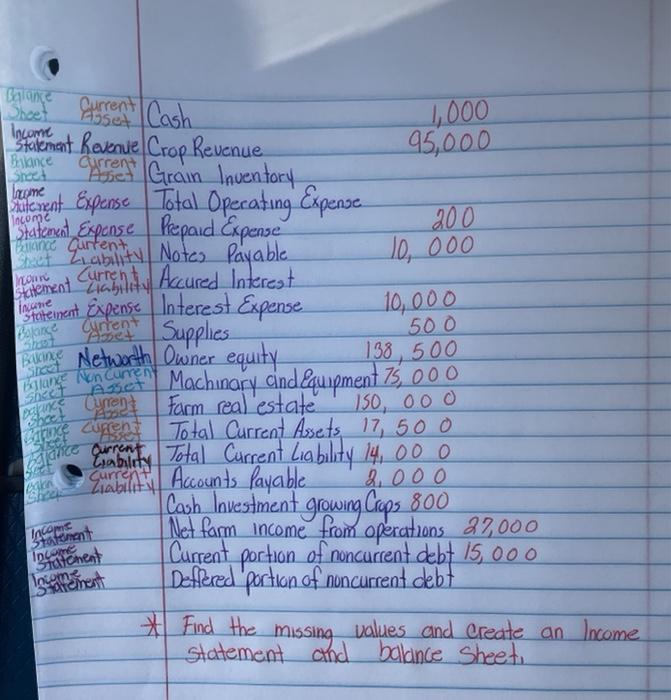 Balance Sheet Current Asset Cash 1,000
Income Statement Revenue Crop Revenue 95,000
Balance Sheet Current Asset Grain Inventory
Income Statement Expense Total Operating Expense
Income Statement Expense Prepaid Expense 200
Balance Sheet Current Liability Notes Payable 10,000
Income Statement Current Liability Accured Interest
Income Statement Expense Interest Expense 10,000
Balance Sheet Current Asset Supplies 500
Balance Sheet Networth Owner equity 138,500
Balance Sheet Non Current Asset Machinary and Equipment 75,000
Balance Sheet Current Asset Farm real estate 150,000
Balance Sheet Current Asset Total Current Assets 17,500
Balance Sheet Current Liability Total Current Liability 14,000
Balance Sheet Current Liability Accounts Payable 2,000
Cash Investment growing Crops 800
Income Statement Net farm income from operations 27,000
Income Statement Current portion of noncurrent debt 15,000
Income Statement Deffered portion of noncurrent debt
* Find the missing values and create an Income
statement and balance sheet.